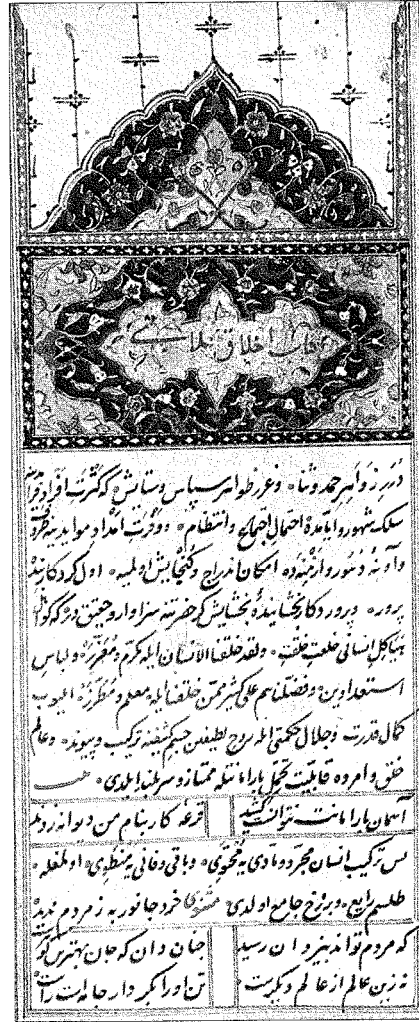 كتاب اخلاق علائى
درر زواهر حمد وثنا وغرر ظواهر سپاس وستايش كه كثرت افراد
سلك شهور واعوامده احتمال اجتماع وانتظام ووفرت امداد
وآونه دهور وازمنه ده امكان اندراج وكنجايش اولميه اول كردكار بنده
پرور و پروردكار بخشاينده بخشايش كر حضرتنه سزاوار وحقيق دركه
هياكل انسانى خلعت خلقت ولقد خلقنا الانسان ايله مكرم ومعزز ولباس
استعدادين وفضلناهم على كثير ممن خلقنا ايله معلم ومطرز ايليوب
كمال قدرت وجلال حكمتى ايله روح لطيفى جسم كثيفه تركيب وپيوند وعالم
خلق وامرده قابليت تحمل بار امانتله ممتاز وسربلند ايلدى
آسمان بار امانت نتوانست كشيد قرعه كار بنام من ديوانه زدند
پس تركيب انسان مجرد ومادى يه محتوى وباقى وفانى يه منطوى اولمغله
طلسم رابع وبرزخ جامع اولدى مثنوى خرد جانور به ز مردم نديد
كه مردم تواند بيزدان رسيد چنان دان كه جان بهترين كوهرست
نه زين عالم از عالم ديكرست تن او را بكردار جامه است راست